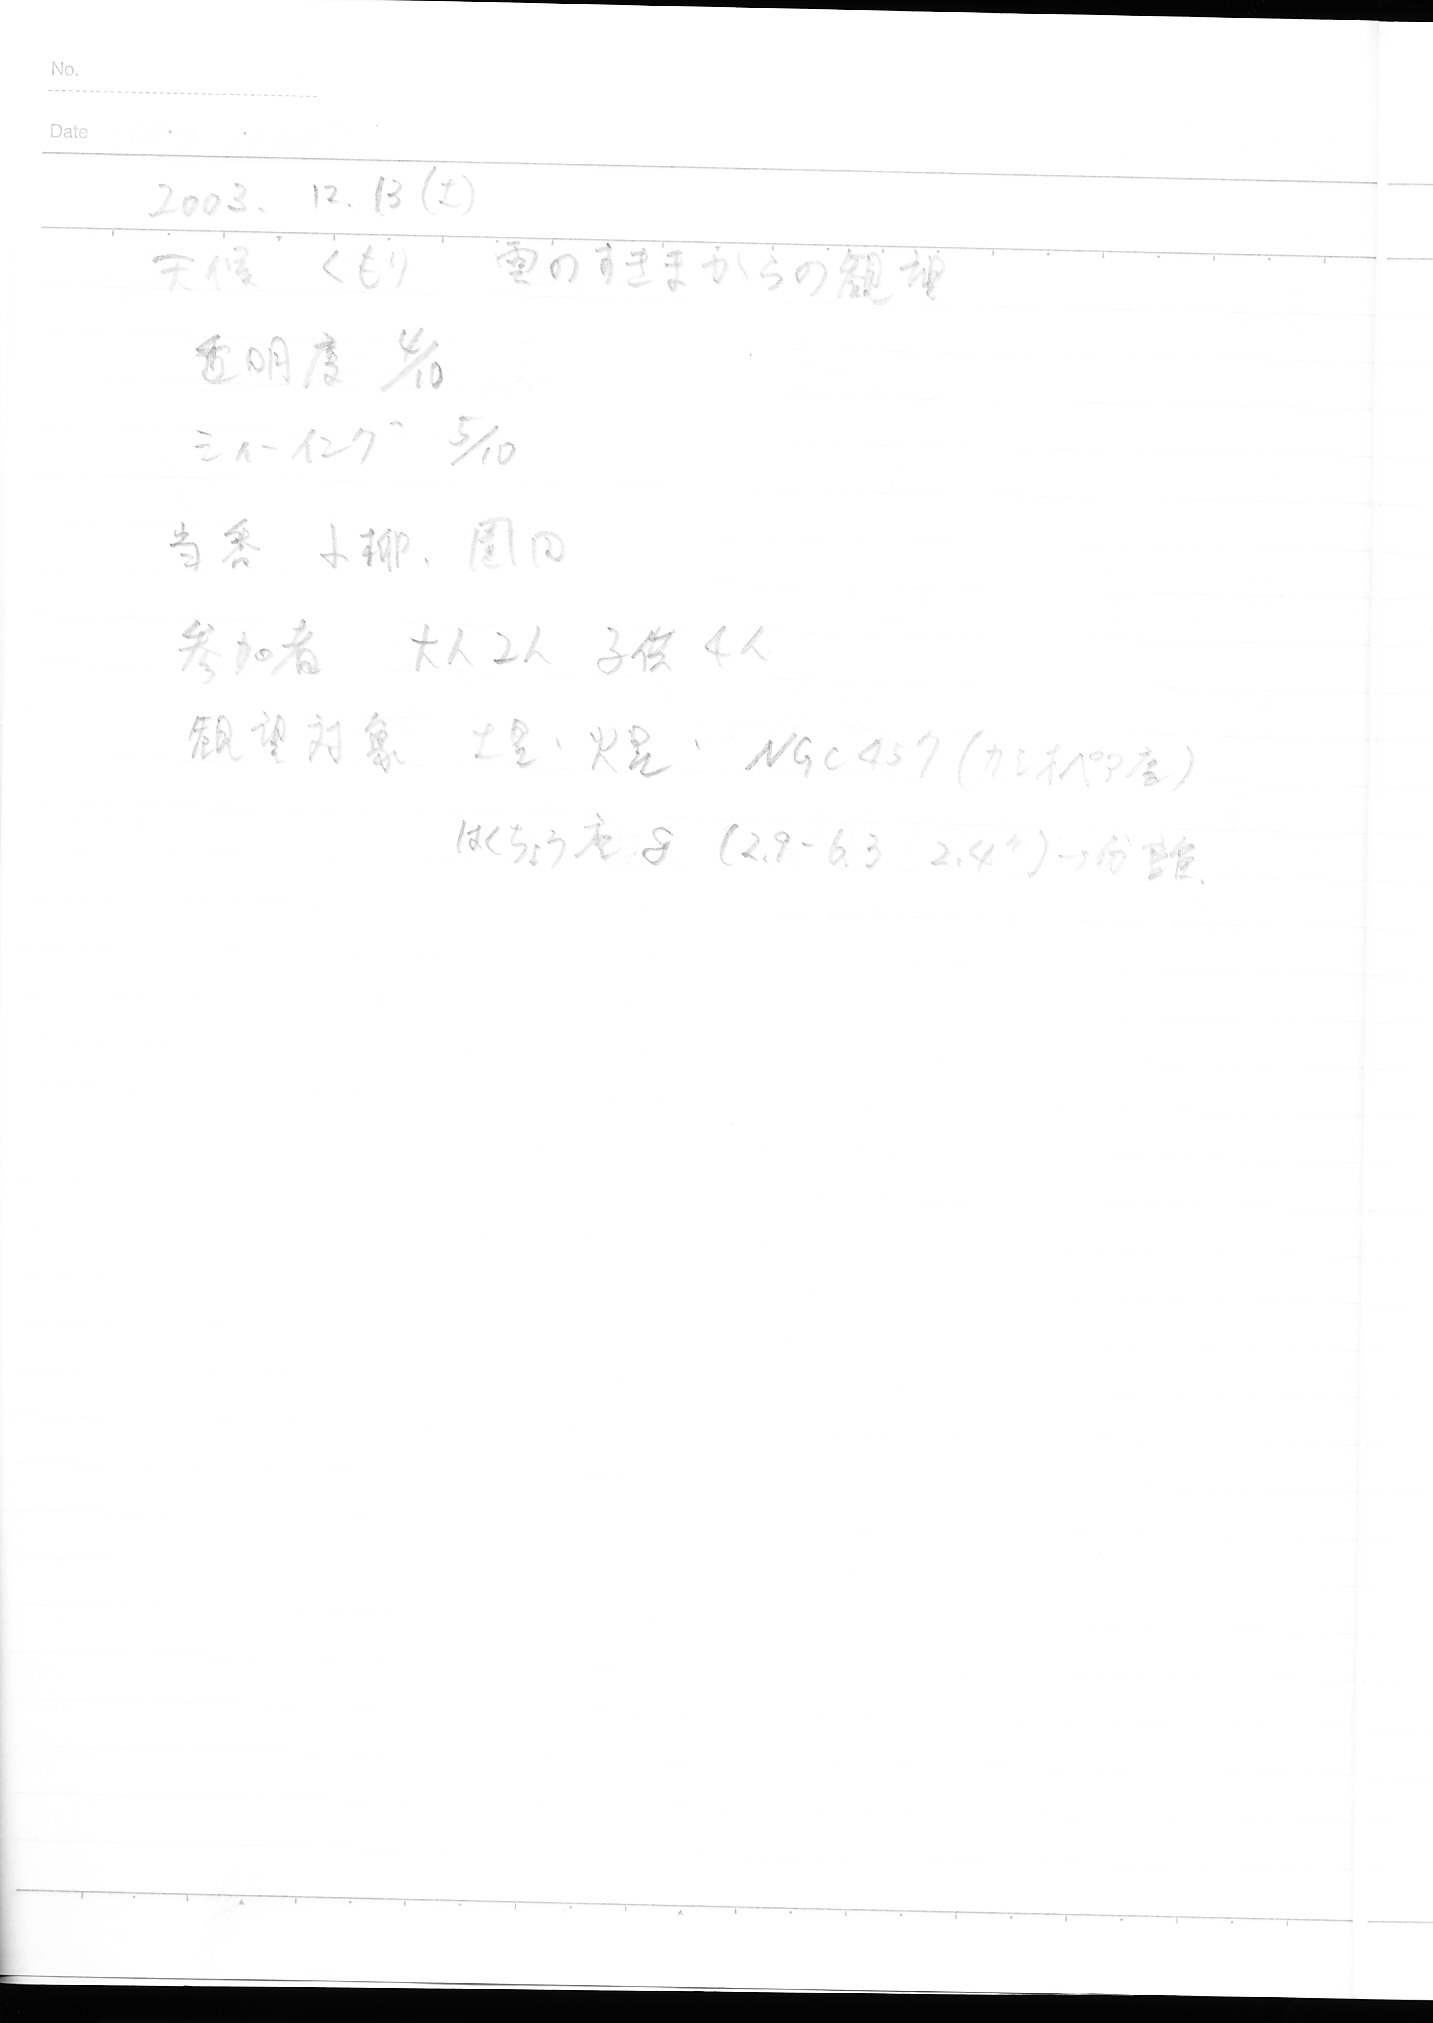 No.
Date
2003. 12. 13(土)
天候 くもり 雲のすきまからの観望
透明度 4/10
シーイング 5/10
当番 小柳、園田
参加者 大人2人 子供4人
観望対象 土星、火星、NGC457(カシオペア座)
はくちょう座δ (2.9-6.3 2.4")→分離.